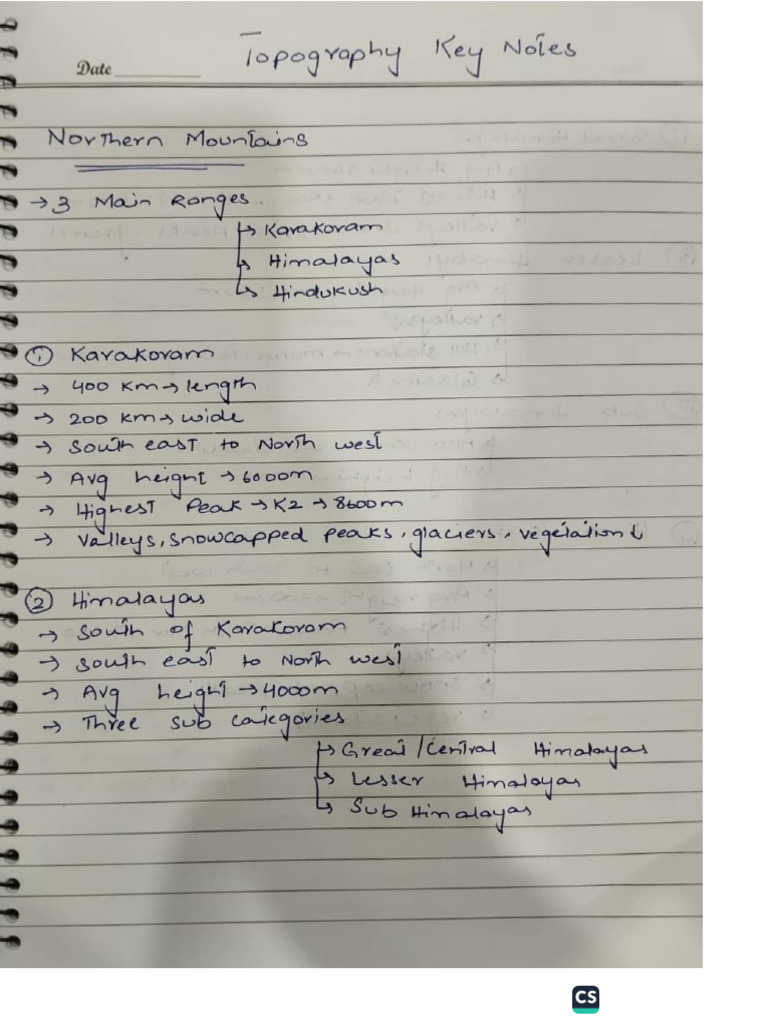 Topography Key Notes
Date
Northern Mountains
→ 3 Main Ranges
↳ Karakoram
↳ Himalayas
↳ Hindukush
① Karakoram
→ 400 km → length
→ 200 km → wide
→ South east to North west
→ Avg height → 6000m
→ Highest Peak → K2 → 8600m
→ Valleys, snowcapped peaks, glaciers, vegetation ↓
② Himalayas
→ South of Karakoram
→ South east to North west
→ Avg height → 4000m
→ Three sub categories
↳ Great/Central Himalayas
↳ Lesser Himalayas
↳ Sub Himalayas
CS